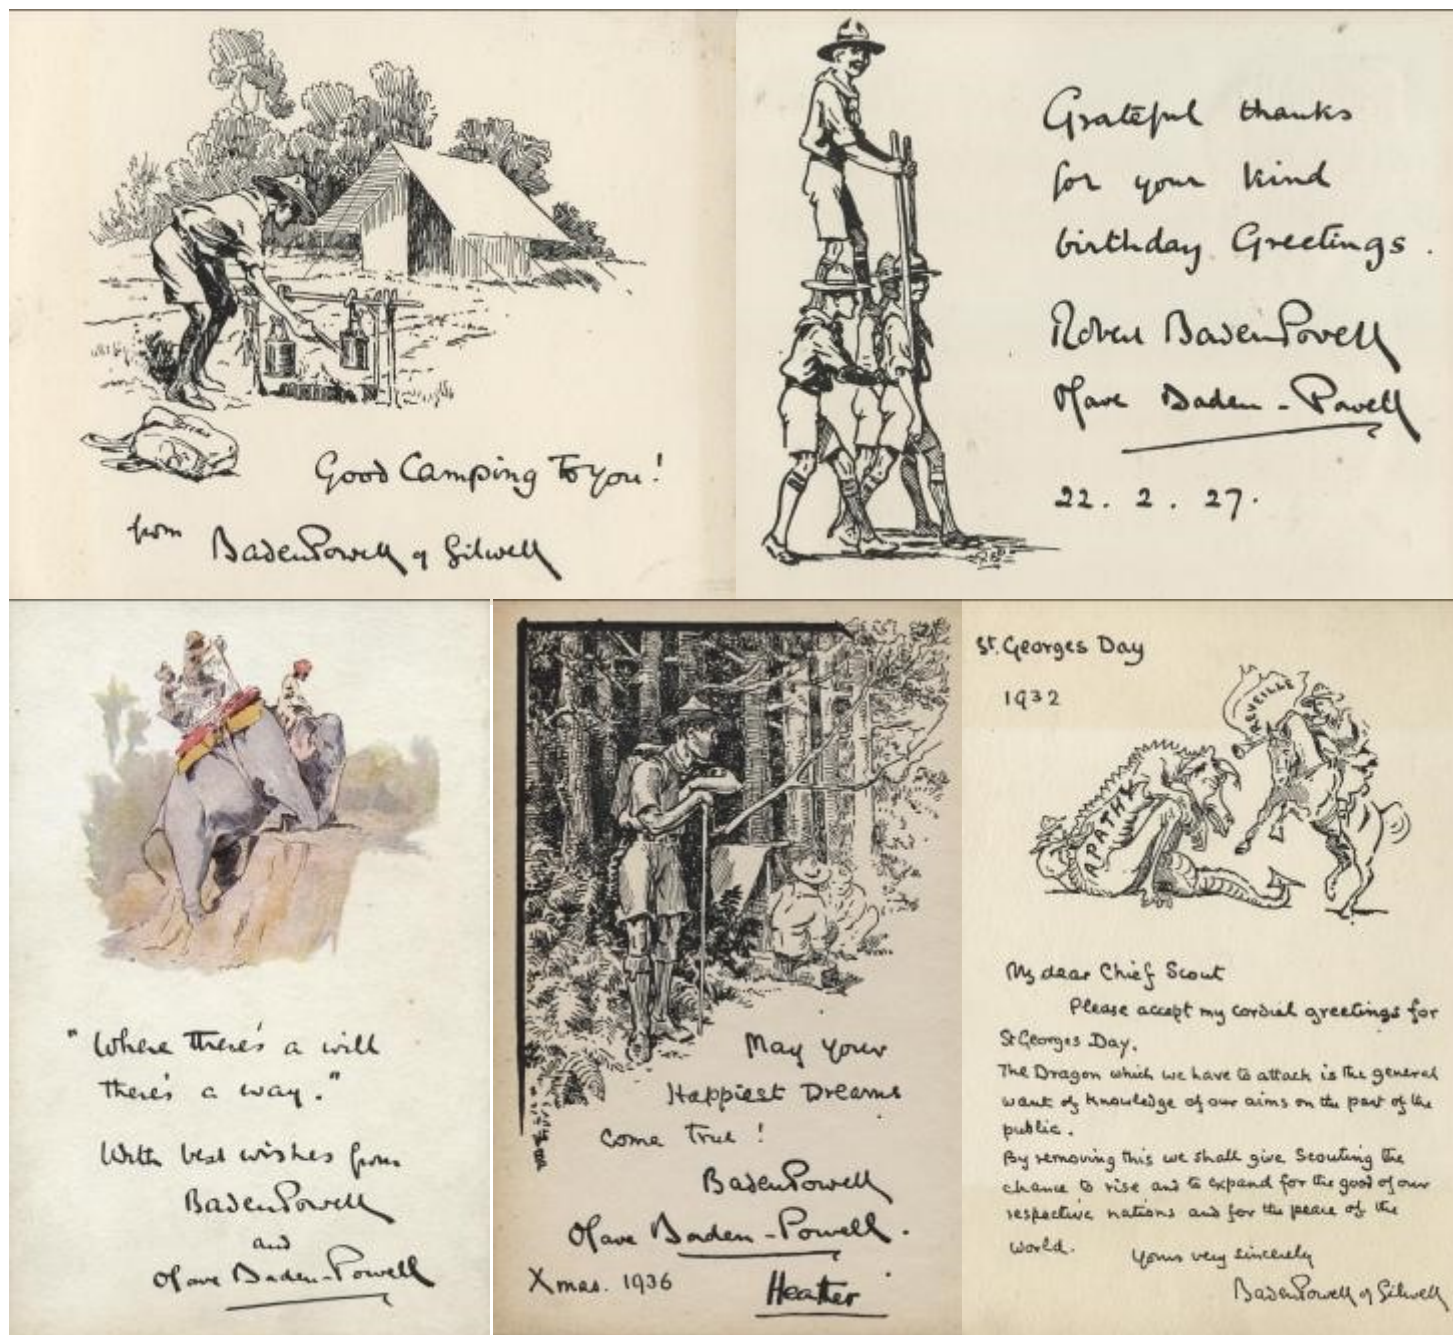 Good Camping To you!
from BadenPowell of Gilwell
Grateful thanks
for your kind
birthday Greetings.
Robert BadenPowell
Olave Baden-Powell
22. 2. 27.
"Where there's a will
there's a way."
With best wishes from
BadenPowell
and
Olave Baden-Powell
May your
Happiest Dreams
come true!
BadenPowell
Olave Baden-Powell.
Xmas. 1936 Heather
St. Georges Day
1932
REVEILLE
APATHY
My dear Chief Scout
Please accept my cordial greetings for
St Georges Day.
The Dragon which we have to attack is the general
want of knowledge of our aims on the part of the
public.
By removing this we shall give Scouting the
chance to rise and to expand for the good of our
respective nations and for the peace of the
world.
Yours very sincerely
BadenPowell of Gilwell